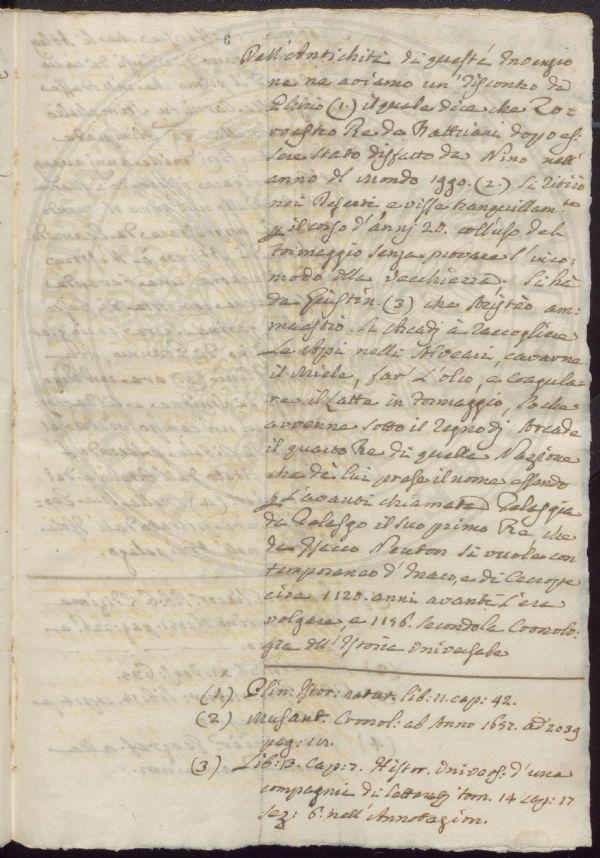 6
Dell'Antichità di questa Invenzio
ne ne aviamo un Riscontro da
Plinio (1.) il quale dice che Zo-
roastro Re da Battriani dopo es-
sere stato disfatto da Nino nell'
anno del Mondo 1990. (2.) si ritirò
nei Deserti e visse tranquillam.te
p il corso d'annj 20. coll'uso del
formaggio senza provare l'inco-
modo della vecchiezza. Si hà
da Giustin. (3) che Aristèo am-
maestrò gli Arcadi à raccogliere
Le Api nelli Alveari, cavarne
il Miele, far L'olio, e coagula-
re il Latte in formaggio, Lo che
avvenne sotto il Regno di Arcade
il quarto Re di quella Nazione
che da lui prese il nome essendo
p L'avanti chiamata Pelasgia
da Pelasgo il suo primo Re, che
da Isacco Neuton si vuole con
temporaneo d'Inaco, e di Cecrope
circa 1120. anni avanti l'era
volgare, e 1196. secondo la Cronolo-
gia dell'Istoria Universale
(1.) Plin: Istor: natur: lib: 11. cap: 42.
(2.) Musant. Cronol: ab Anno 1652. ad 2039
pag: 111.
(3) Lib: 13. Cap: 7. Histor. Univers. d'una
compagnia di Letterati tom. 14 cap: 17
sez: 6. nell'Annotazion.